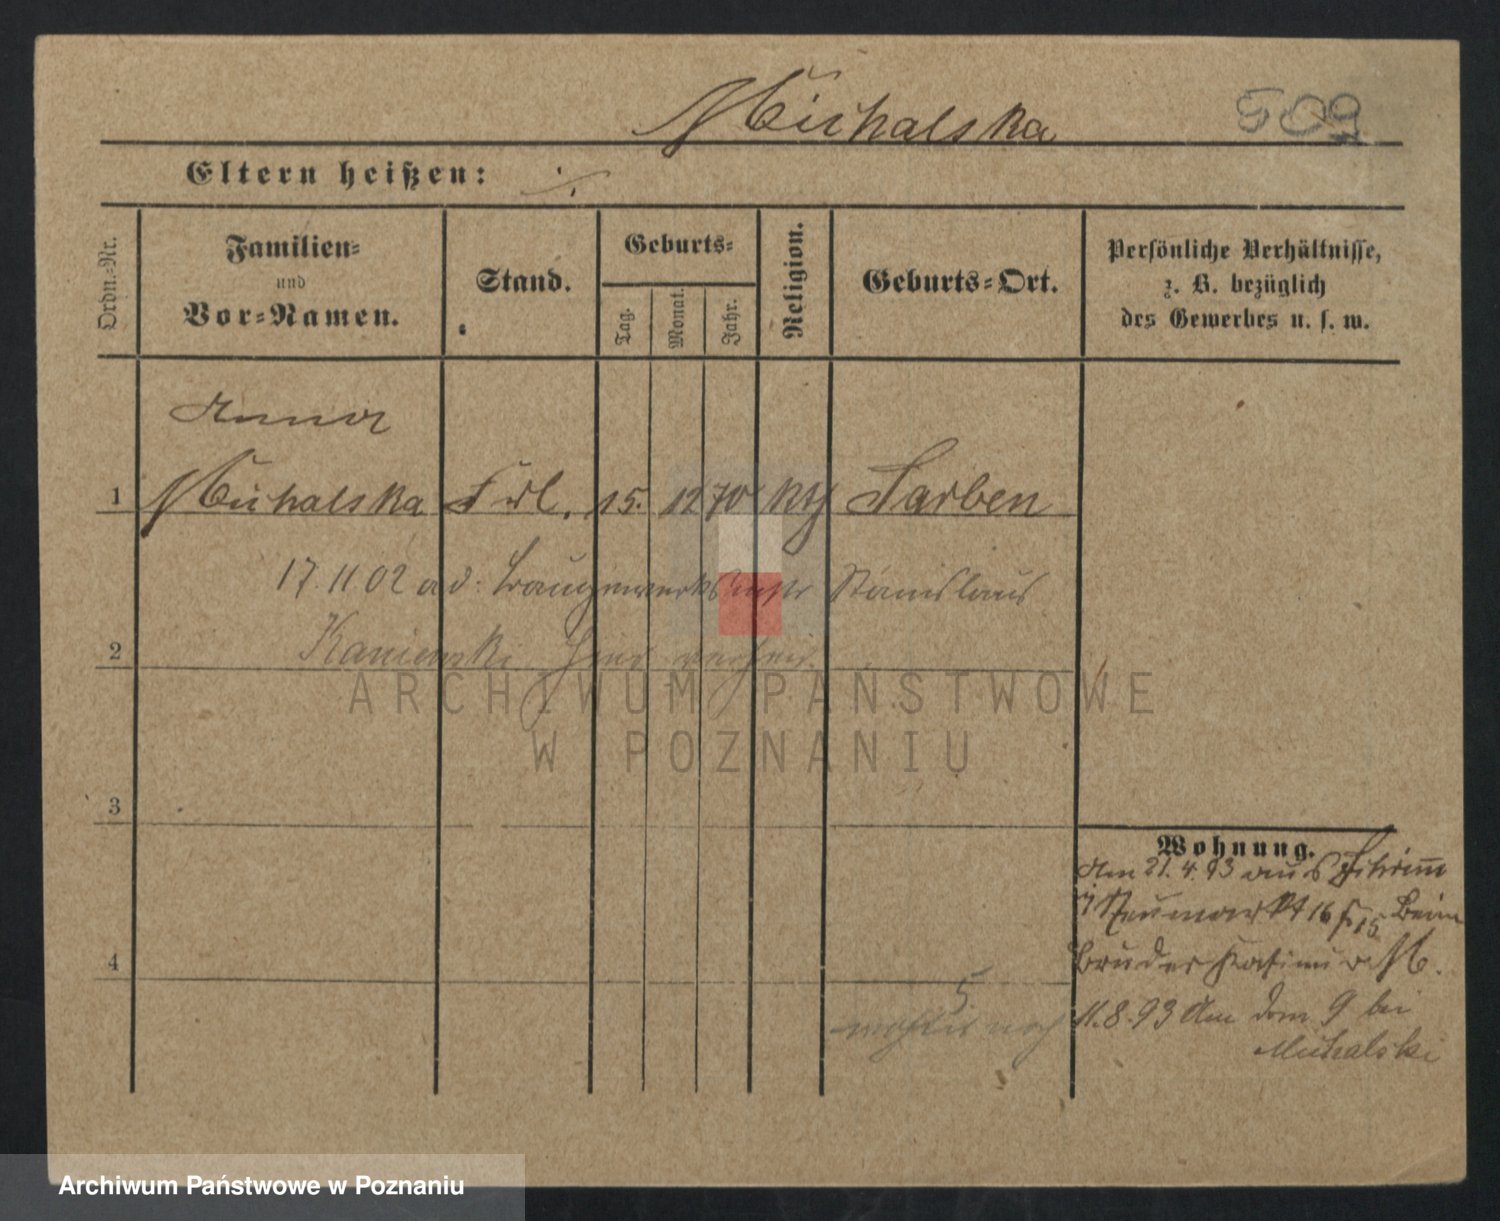 Michalska 509
Eltern heißen: ./.
Ordn.-Nr.
Familien-
und
Vor-Namen.
Stand.
Geburts-
Tag.
Monat.
Jahr.
Religion.
Geburts-Ort.
Persönliche Verhältnisse,
z. B. bezüglich
des Gewerbes u. s. w.
Anna
1 Michalska Frl. 15. 12 70 kth Sarben
17.11.02 a d: Baugewerks Stanislaus
2 Kaniewski hier verheir.
ARCHIWUM PAŃSTWOWE
W POZNANIU
3
Wohnung.
Am 21.4.93 aus Schrimm
Neumarkt 16 beim
4
Bruder Kasimir M.
5
noch
11.8.93 Am Dom 9 bei
Michalski
Archiwum Państwowe w Poznaniu